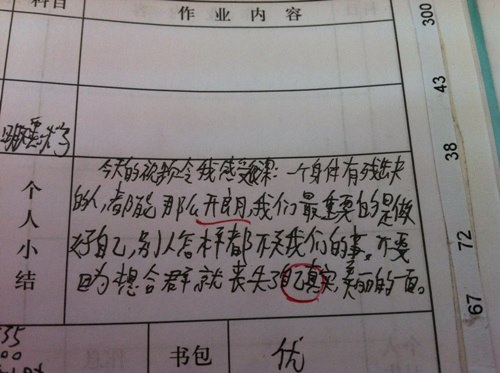 科目
作业内容
300
43
38
72
67
今天的视频令我感觉深:一个身体有残缺
的人,都能那么开朗,我们最重要的是做
好自己,别人怎样都不关我们的事。不要
因为想合群,就丧失了自己真实,美丽的一面。
个
人
小
结
35
00
书包
优